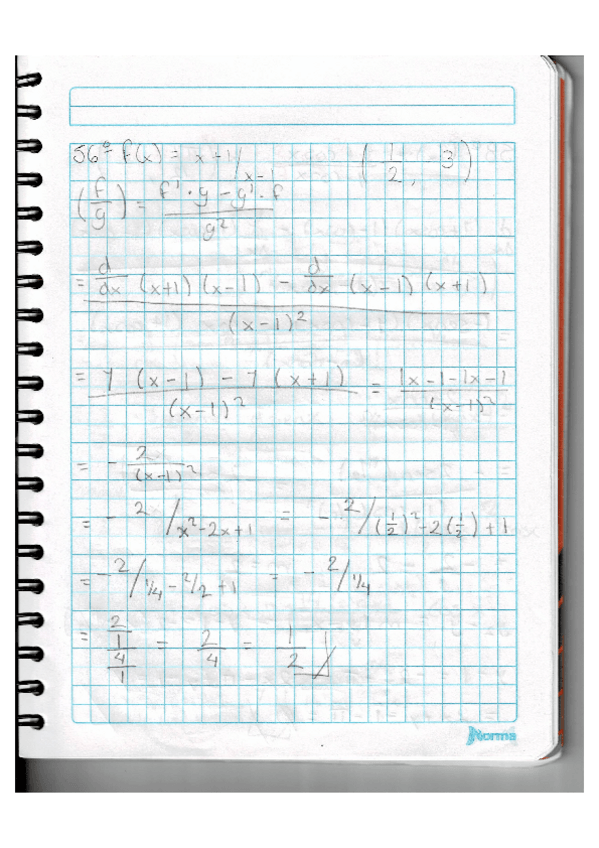 56º f(x) = x+1/x-1 (1/2, 3)
(f/g) = f' · g - g' · f / g²
= d/dx (x+1) (x-1) - d/dx (x-1) (x+1) / (x-1)²
= 1 (x-1) - 1 (x+1) / (x-1)² = 1x-1-1x-1 / (x-1)²
= - 2/(x-1)²
= - 2/x²-2x+1 = - 2/(1/2)²-2(1/2)+1
= - 2/1/4 - 2/2 + 1 = - 2/1/4
= 2/1/4/1 = 2/4 = 1/2
Norma